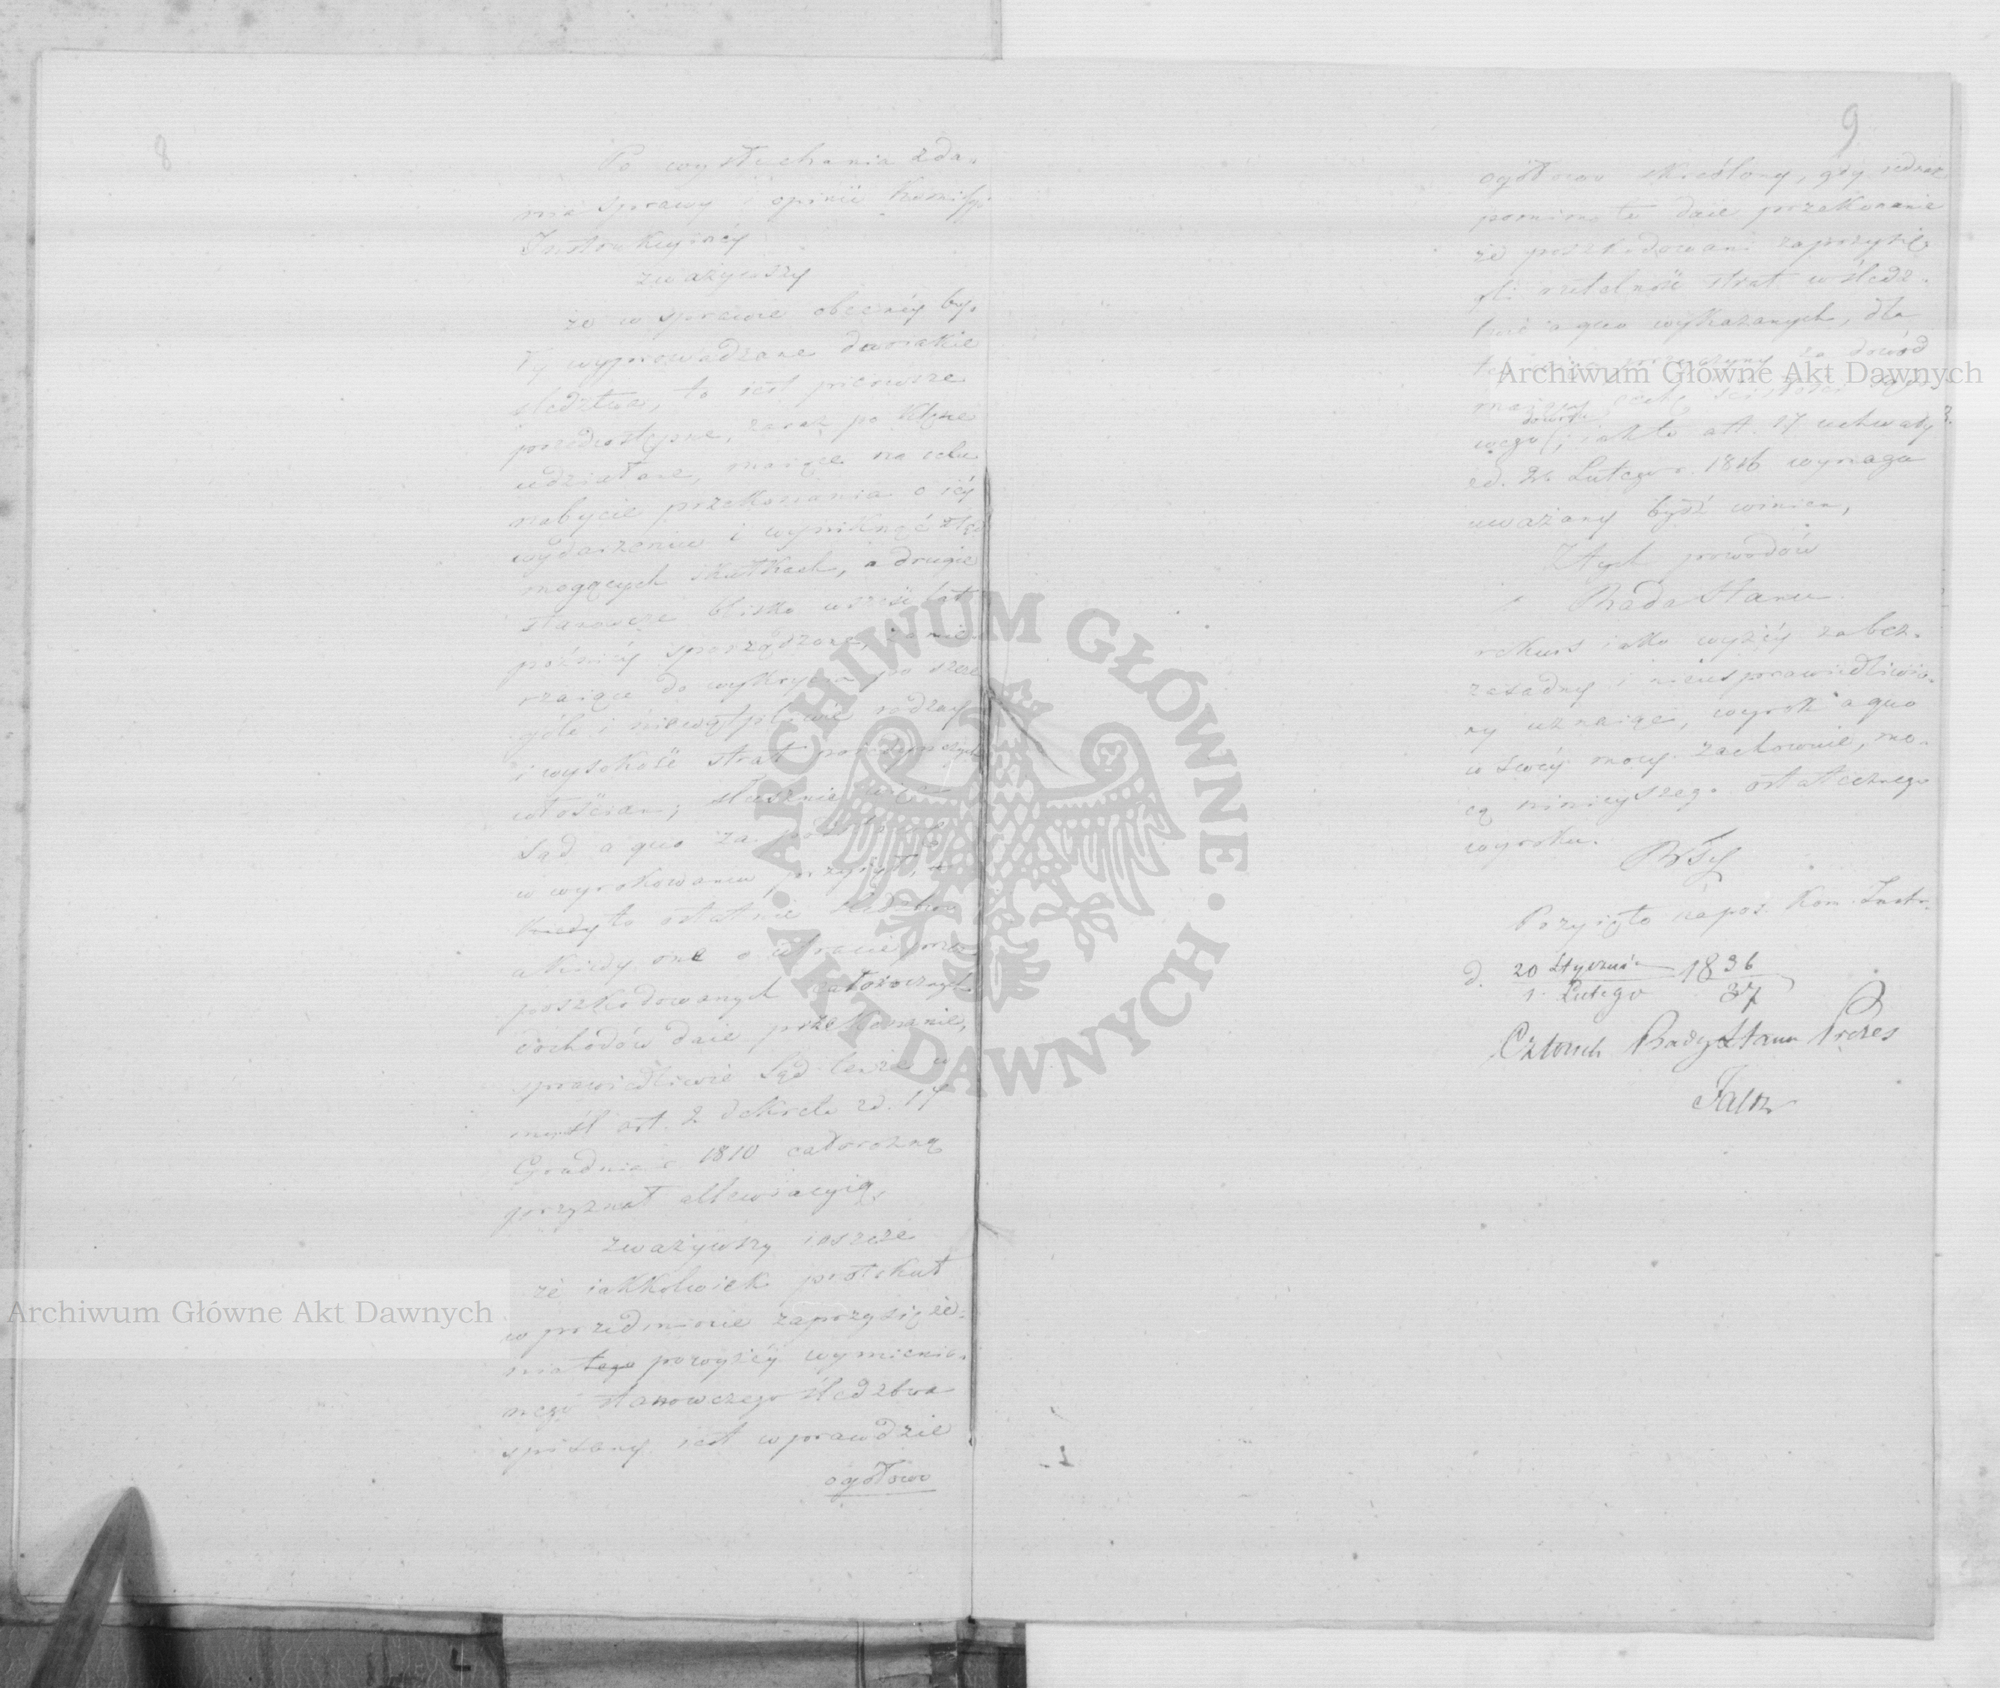 8
Po wysłuchania zda-
nia sprawy i opinii Komissyi
Instrukcyinéy
zważywszy
że w sprawie obecnéy by-
ły wyprowadzane dwoiakie
śledztwa, to iest pierwsze
przedwstępne, zaraz po klęsce
udziałane, maiące na celu
nabycie przekonania o iéy
wydarzeniu i wyniknąć ztąd
mogących skutkach, a drugie
stanowcze blisko w sześć lat
późniéy sporządzone,
rzaiące do wykrycia po szcze
góle i niewątpliwie rodzay
i wysokość strat
włościan; słusznie
Sąd a quo za
w wyrokowaniu przyiął, a
kiedy to ostatnie śledztwo
a kiedy one o utracie przez
poszkodowanych całorocznych
dochodów daie przekonanie,
sprawiedliwie Sąd tenże w
myśl art. 2 dekretu zd. 17
Grudnia r. 1810 całoroczną
przyznał allewiacyią,
zważywszy ieszcze
że iakkolwiek protokuł
w przedmiocie zaprzysięże-
nia tego powyżéy wymienio-
nego stanowczego śledztwa
spisany iest wprawdzie
ogółowo
9
ogółowo skréślony, gdy iednak
pomimo to daie przekonanie
że poszkodowani zaprzysię-
gli rzetelność strat w śledz-
twie a quo wykazanych, dla
dowód
dowodu
wego i iak to art. 17 uchwały
zd. 26 Lutego r. 1826 wymaga
uważany bydź winien,
Z tych powodów
Rada Stanu
rekurs iako wyżéy zabez-
zasadny i niesprawiedliwio-
ny uznaiąc, wyrok a quo
w swéy mocy zachowuie, mo-
cą ninieyszego ostatecznego
wyroku.
Przyięto na pos. Kom. Instr.
d. 20 Stycznia 1836
1 Lutego 37
Członek Rady Stanu Prezes
Archiwum Główne Akt Dawnych
Archiwum Główne Akt Dawnych
ARCHIWUM GŁÓWNE
AKT DAWNYCH